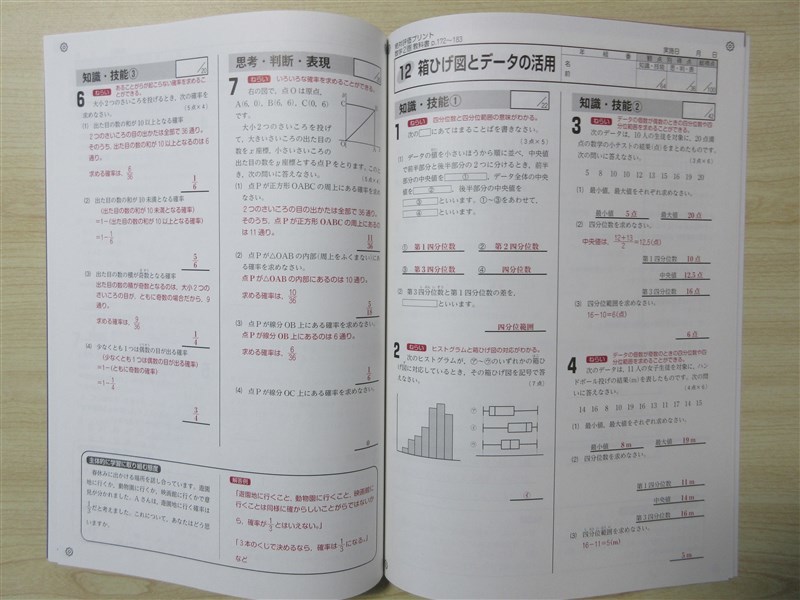 知識・技能③
6
ねらい あることがらが起こらない確率を求めることができる。
大小2つのさいころを投げるとき、次の確率を
求めなさい。
(5点×4)
(1) 出た目の数の和が10以上となる確率
2つのさいころの目の出かたは全部で36通り。
そのうち、出た目の数の和が10以上となるのは6
通り。
求める確率は、6/36
1/6
(2) 出た目の数の和が10未満となる確率
(出た目の数の和が10未満となる確率)
=1-(出た目の数の和が10以上となる確率)
=1-1/6
5/6
(3) 出た目の数の積が奇数となる確率
出た目の数の積が奇数となるのは、大小2つ
のさいころの目が、ともに奇数の場合だから、9
通り。
求める確率は、9/36
1/4
(4) 少なくとも1つは偶数の目が出る確率
(少なくとも1つは偶数の目が出る確率)
=1-(ともに奇数の確率)
=1-1/4
3/4
思考・判断・表現
/30
7
ねらい いろいろな確率を求めることができる。
右の図で、点Oは原点、
A(6, 0), B(6, 6), C(0, 6)
です。
大小2つのさいころを投げ
て、大きいさいころの出た目
の数をx座標、小さいさいころの
出た目の数をy座標とする点Pをとります。この
とき、次の問いに答えなさい。
(1) 点Pが正方形OABCの周上にある確率を求
めなさい。
2つのさいころの目の出かたは全部で36通り。
そのうち、点Pが正方形OABCの周上にあるの
は11通り。
11/36
(2) 点Pが△OABの内部(周上をふくまない)にあ
る確率を求めなさい。
点Pが△OABの内部にあるのは10通り。
求める確率は、10/36
5/18
(3) 点Pが線分OB上にある確率を求めなさい。
点Pが線分OB上にあるのは6通り。
求める確率は、6/36
1/6
(4) 点Pが線分OC上にある確率を求めなさい。
0
主体的に学習に取り組む態度
春休みに出かける場所を話し合っています。遊園
地に行くか、動物園に行くか、映画館に行くかで意
見が分かれました。Aさんは、遊園地に行く確率は
1/3だと考えました。これについて、あなたはどう思
いますか。
解答例
「遊園地に行くこと、動物園に行くこと、映画館に
行くことは同様に確からしいことがらではないか
ら、確率が1/3とはいえない。」
「3本のくじで決めるなら、確率は1/3になる。」
など
観点別評価プリント
数学2年 教科書 p.170~183
12 箱ひげ図とデータの活用
実施日 月 日
年 組 番
名前
知識・技能
知識・技能①
1
ねらい 四分位数と四分位範囲の意味がわかる。
次の□にあてはまることばを書きなさい。
(3点×5)
(1) データの値を小さいほうから順に並べ、中央値
で前半部分と後半部分の2つに分けるとき、前半
部分の中央値を①、データ全体の中央
値を②、後半部分の中央値を
③といいます。①~③をあわせて、
④といいます。
① 第1四分位数 ② 第2四分位数
③ 第3四分位数 ④ 四分位数
(2) 第3四分位数と第1四分位数の差を、
といいます。
四分位範囲
2
ねらい ヒストグラムと箱ひげ図の対応がわかる。
次のヒストグラムが、㋐~㋒のいずれかの箱ひ
げ図に対応しているとき、その箱ひげ図を記号で答
えなさい。
(7点)
㋐
㋑
㋒
㋑
知識・技能②
3
ねらい データの個数が偶数のときの四分位数や四
分位範囲を求めることができる。
次のデータは、10人の生徒を対象に、20点満
点の数学の小テストの結果(点)をまとめたものです。
次の問いに答えなさい。
(1) 最小値、最大値をそれぞれ求めなさい。
最小値 5点 最大値 20点
(2) 四分位数を求めなさい。
中央値は、(12+13)/2=12.5(点)
第1四分位数 10点
中央値 12.5点
第3四分位数 16点
(3) 四分位範囲を求めなさい。
16-10=6(点)
6点
4
ねらい データの個数が奇数のときの四分位数や四
分位範囲を求めることができる。
次のデータは、11人の女子生徒を対象に、ハン
ドボール投げの結果(m)を表したものです。次の問
いに答えなさい。
(4点×6)
14 16 8 10 19 16 13 11 17 14 15
(1) 最小値、最大値をそれぞれ求めなさい。
最小値 8m 最大値 19m
(2) 四分位数を求めなさい。
第1四分位数 11m
中央値 14m
第3四分位数 16m
(3) 四分位範囲を求めなさい。
16-11=5(m)
5m